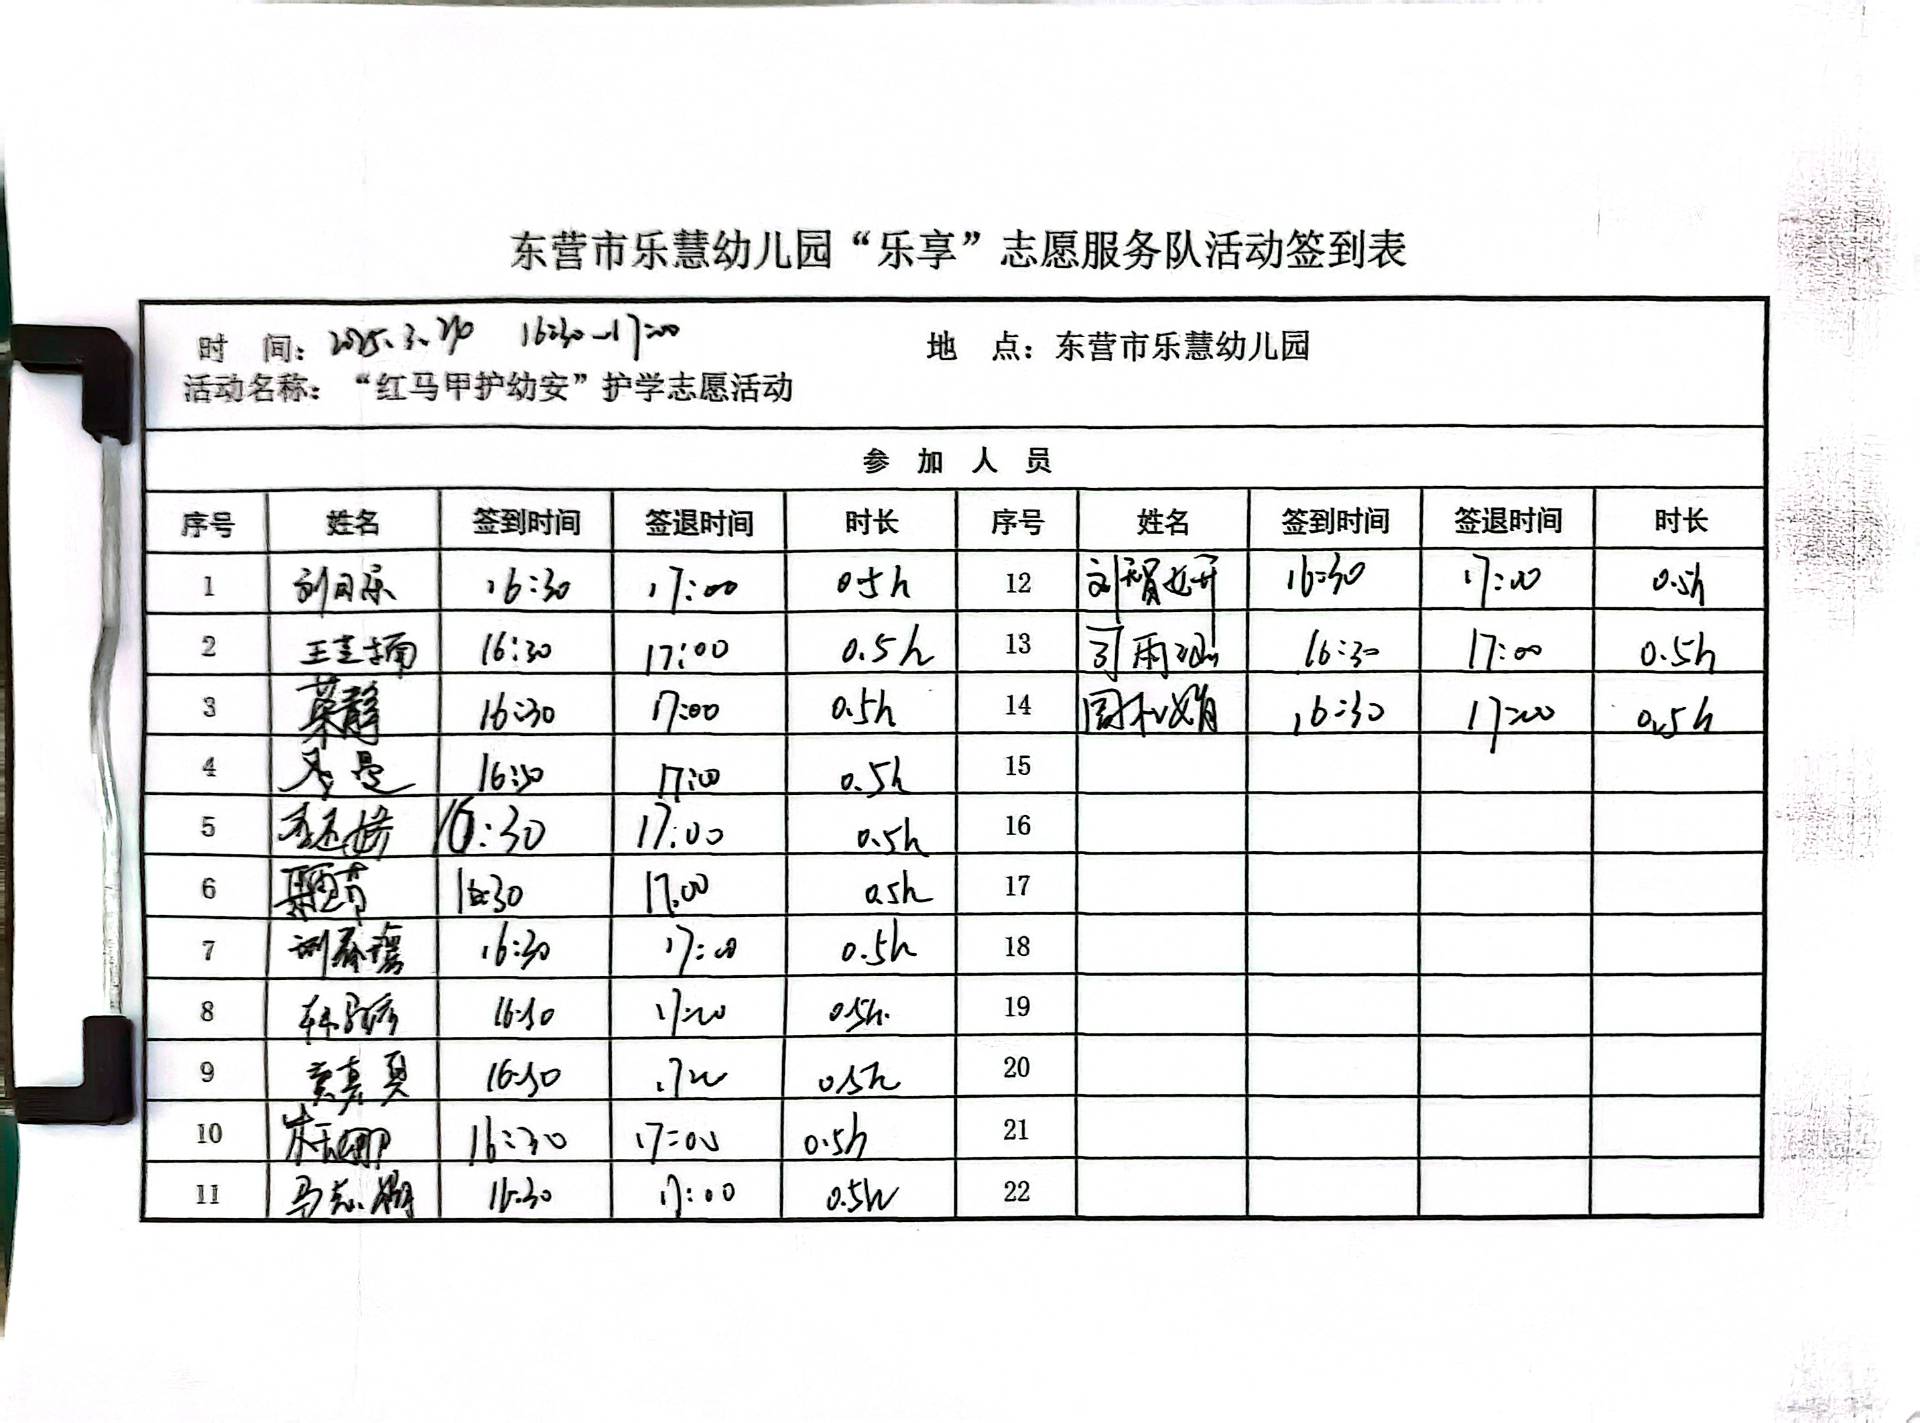 东营市乐慧幼儿园“乐享”志愿服务队活动签到表
时 间：2025.3. 16:30-17:00 地 点：东营市乐慧幼儿园
活动名称：“红马甲护幼安”护学志愿活动
参 加 人 员
序号 姓名 签到时间 签退时间 时长 序号 姓名 签到时间 签退时间 时长
1 16:30 17:00 0.5h 12 16:30 17:00 0.5h
2 16:30 17:00 0.5h 13 16:30 17:00 0.5h
3 16:30 17:00 0.5h 14 16:30 17:00 0.5h
4 16:30 17:00 0.5h 15
5 16:30 17:00 0.5h 16
6 16:30 17:00 0.5h 17
7 16:30 17:00 0.5h 18
8 16:30 17:00 0.5h. 19
9 16:30 17:00 0.5h 20
10 16:30 17:00 0.5h 21
11 16:30 17:00 0.5h 22